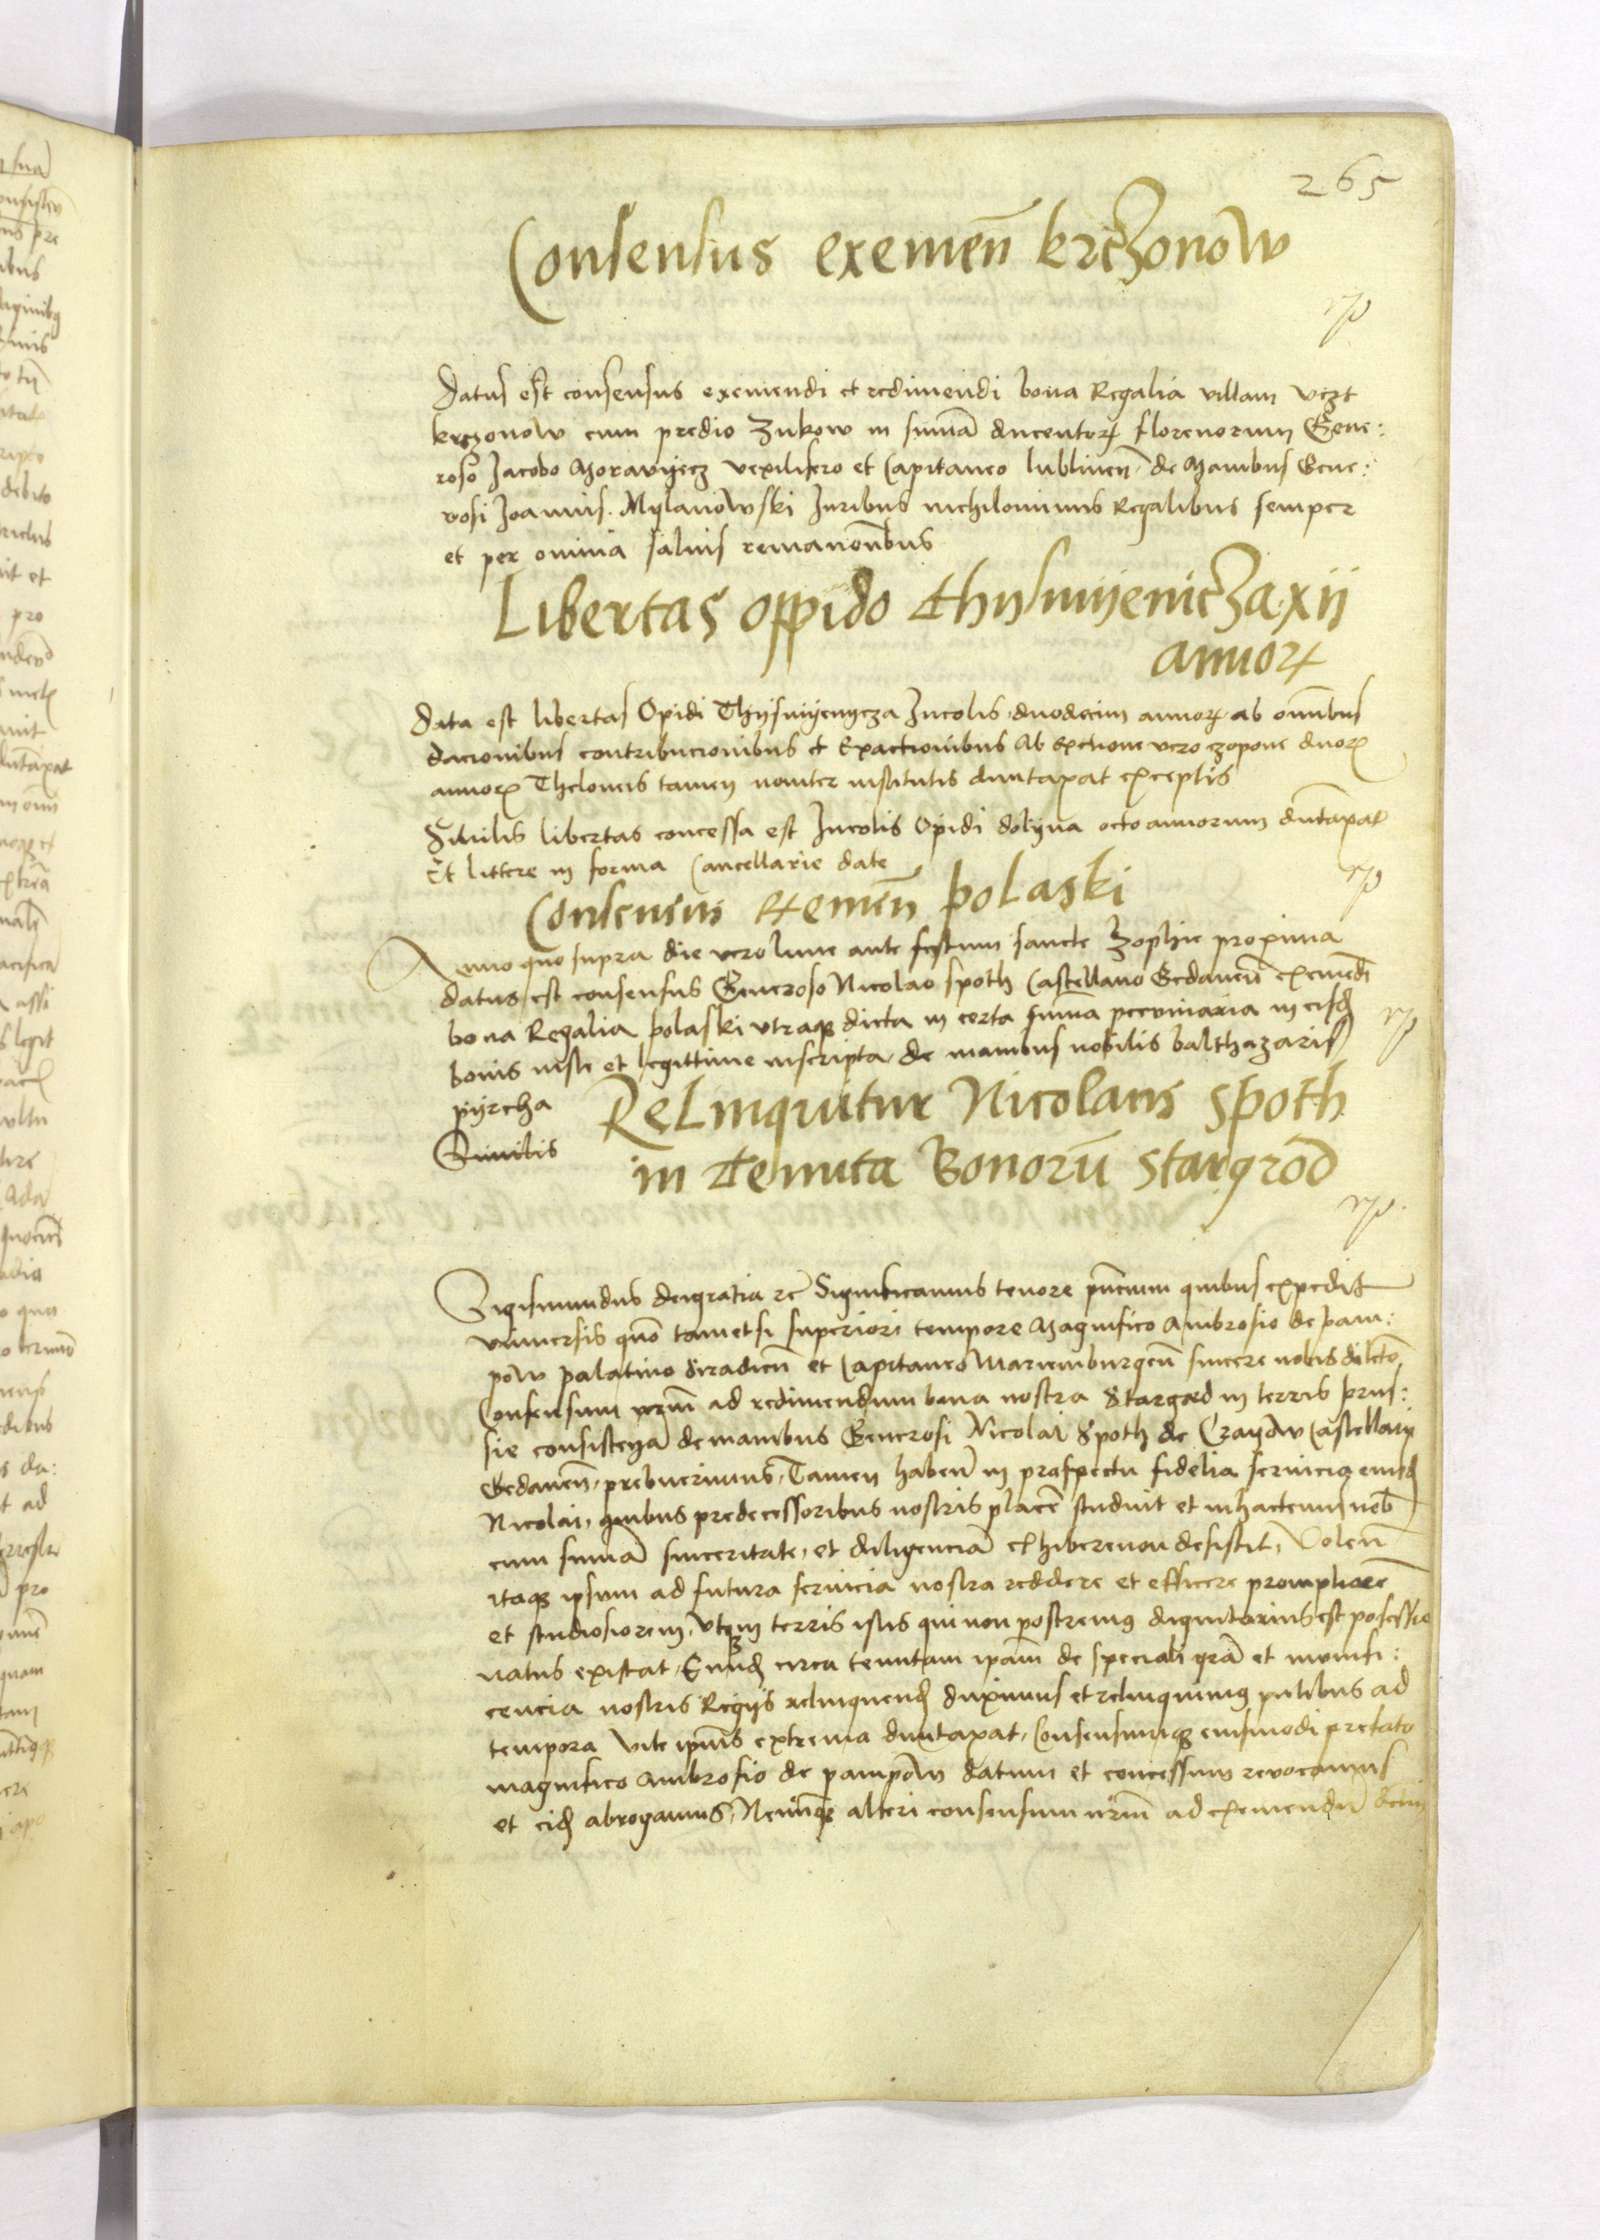 265
Consensus exemen̄ krczonow
rp
Datus est consensus exemendi et redimendi bona Regalia villam vczt
krczonow cum predio Zukow in sum̄a ducentorꝝ florenorum Gene:
roso Jacobo Moravyecz vexilifero et Capitaneo lublinen̄ de Manibus Gene:
rosi Joannis Mylanowski Juribus nichilominus Regalibus semper
et per omnia saluis remanen̄bus
Libertas oppido thysmyeniczA xij
annorꝝ
Data est libertas Opidi Thysmyenycza Incolis duodecim annorꝝ ab om̄bus
dacionibus contribucionibus et Exactionibus Ab exctione vero czopone duorꝝ
annorꝝ Theloneis tamen nouiter institutis duntaxat exceptis
Similis libertas concessa est Incolis Opidi dolyna octo annorum dūtaxat
Et littere in forma Cancellarie date
rp
Consensus exemen̄ polaski
Anno quo supra die vero lune ante festum sancte Zophie proxima
datus est consensus Generoso Nicolao spoth Castellano Gedanen̄ exemēdi
bona Regalia polaski vtraqꝫ dicta in certa sum̄a peccuniaria in eisdꝫ
rp
bonis iuste et legittime inscripta de manibus nobilis balthazaris
pyrcha
Similis
Relinquitur Nicolaus spoth
in tenuta Bonorū stargrod
rp
Sigismundus dei gratia ꝛc Significamus tenore pn̄cium quibus expedit
vniuersis quō tametsi superiori tempore Magnifico Ambrosio de pam:
pow palatino siradien̄ et Capitaneo Mariemburgen̄ sincere nobis dilcto
Consensum nrm̄ ad redimendum bona nostra Stargard in terris prus:
sie consistencia de manibus Generosi Nicolai Spoth de Crayow Castellani
Gedanen̄ prebuerimus, Tamen haben̄ in prospectu fidelia seruicia eiusdꝫ
Nicolai, quibus predecessoribus nostris placē studuit et in hactenus neb
cum sum̄a sinceritate, et diligenciā exhibere non desistit, Volen̄
itaqꝫ ipsum ad futura seruicia nostra reddere et efficere prompciorē
et studiosiorem, vtqꝫ in terris istis qui non postremus dignitarius est possessio
natus existat, Eundꝫ circa tenutam ipam̄ de speciali grā et munifi:
cencia nostris Regiis relinquendꝫ duximus et relinquimus pn̄tibus ad
tempora vite ipius extrema duntaxat, Consensumqꝫ eiusmodi prefato
magnifico ambrosio de pampow datum et concessum revocamus
et eidꝫ abrogamus, Nemīqꝫ alteri consensum nrm̄ ad exemendū